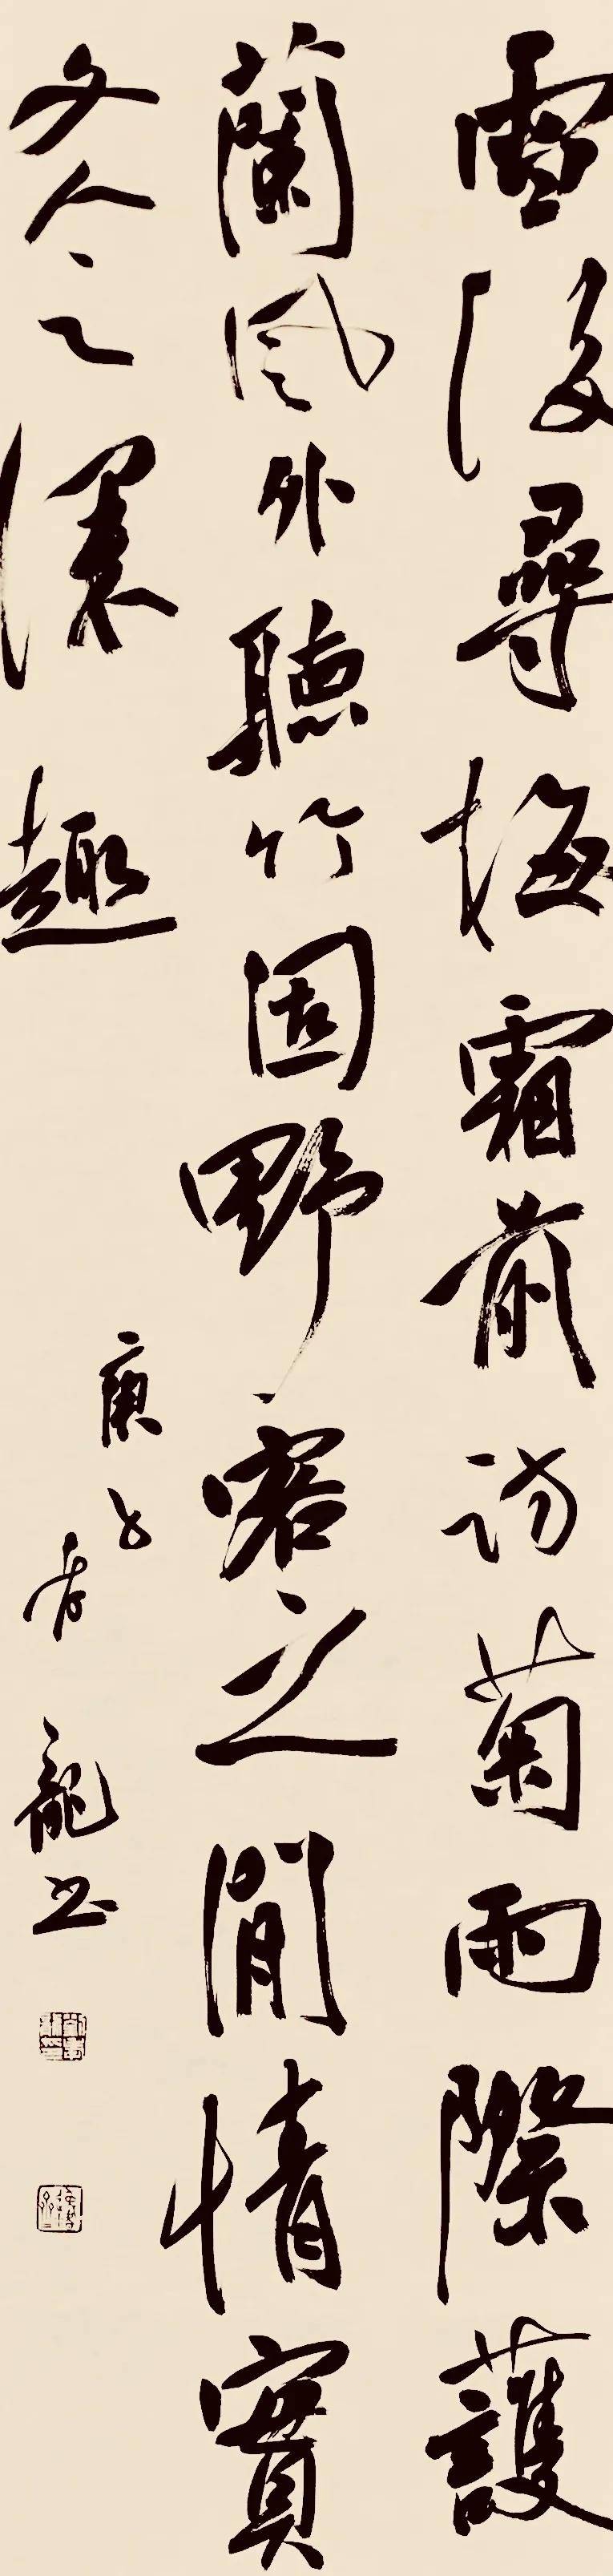 雪後尋梅霜前訪菊雨際護
蘭風外聽竹固野客之閒情實
文人之深趣
庚子春龍書